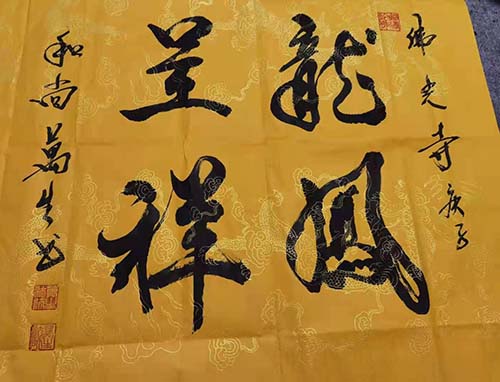 佛光寺庚子
龍鳳
呈祥
和尚萬生书